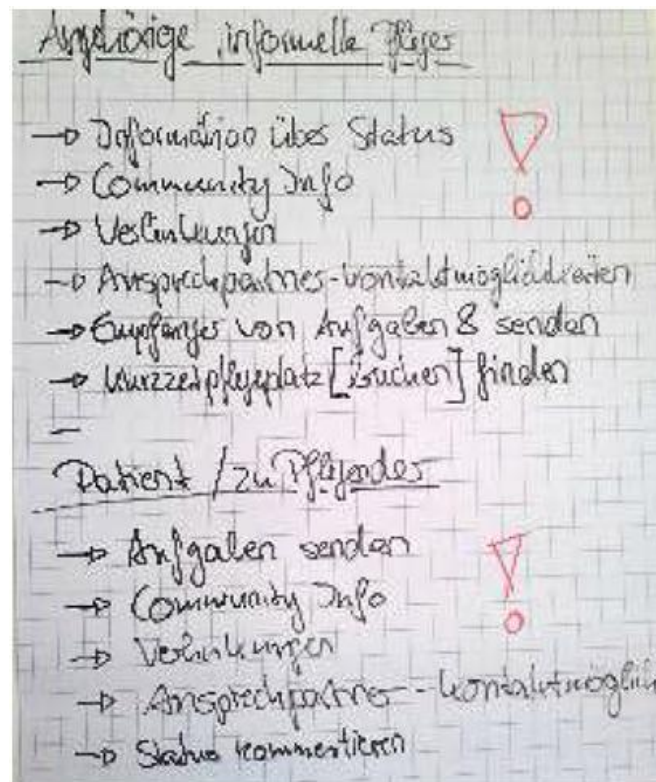 Angehörige, informelle Pfleger
→ Information über Status
→ Community Info
→ Verlinkungen
→ Ansprechpartner-kontaktmöglichkeiten
→ Empfänger von Aufgaben & senden
→ Kurzzeitpflegeplatz [buchen] finden
–
Patient / zu Pflegender
→ Aufgaben senden
→ Community Info
→ Verlinkungen
→ Ansprechpartner - kontaktmöglich
→ Status kommentieren